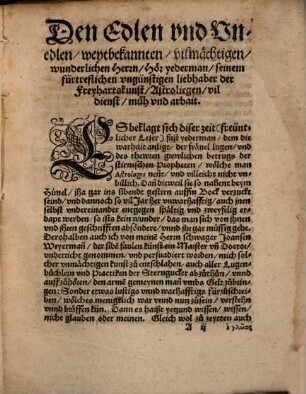 Den Edlen vnd Vn-
edlen/ weytbekannten/ vilmächtigen/
wunderlichen Herrn/ Hör yederman/ seinem
fürtreflichen vngünstigen liebhaber der
Freyhartskunst/ Astroliegen/ vil
dienst/ müh vnd arbait.
ES beklagt sich diser zeit (freünt-
licher Leser) fast yederman/ dem die
warhait anligt/ der frävel lugen/ vnd
des theweren grewlichen betrugs der
stirnischen Propheten/ wölche man
Astrologos nent/ vnd villeicht nicht vn-
billich. Dann dieweil sie so nahent beym
Himel/ jha gar inn sibenden gestirn auffm Bock verzuckt
seind/ vnd dannoch so vil Jar her vnwarhafftig/ auch jnen
selbst vndereinander entgegen spältig vnd zweyspaltig
werden: so ists kein wunder/ das man sich von jhnen
vnd jhren geschrifften absöndere/ vnnd jhr gar müssig gehe.
Derohalben auch ich von meinē Herrn schwager Joann
Weyerman/ der sibē faulen künsten Maister vn̄ Doctor/
vnderricht genommen/ vnd persuadiert worden/ mich sol-
cher vnnutzlichen kunst zu entschlahen. auch aller Lugen-
büchlein vnd Practicken der Sterngucker abzuthůn/ vnnd
auffzühören/ den armē gemeynen man vmbs Gelt zübrin-
gen: Sonder etwas lustigs vnnd warhafftigs fürzuschrei-
ben/ wölches menigklich war vnnd nutz sein/ verstehn
vnnd brüffen kün. Dann es haißt yetzund wissen/ wissen/
nicht glauben oder meinen. Gleich wol zu zeyten auch
A ij